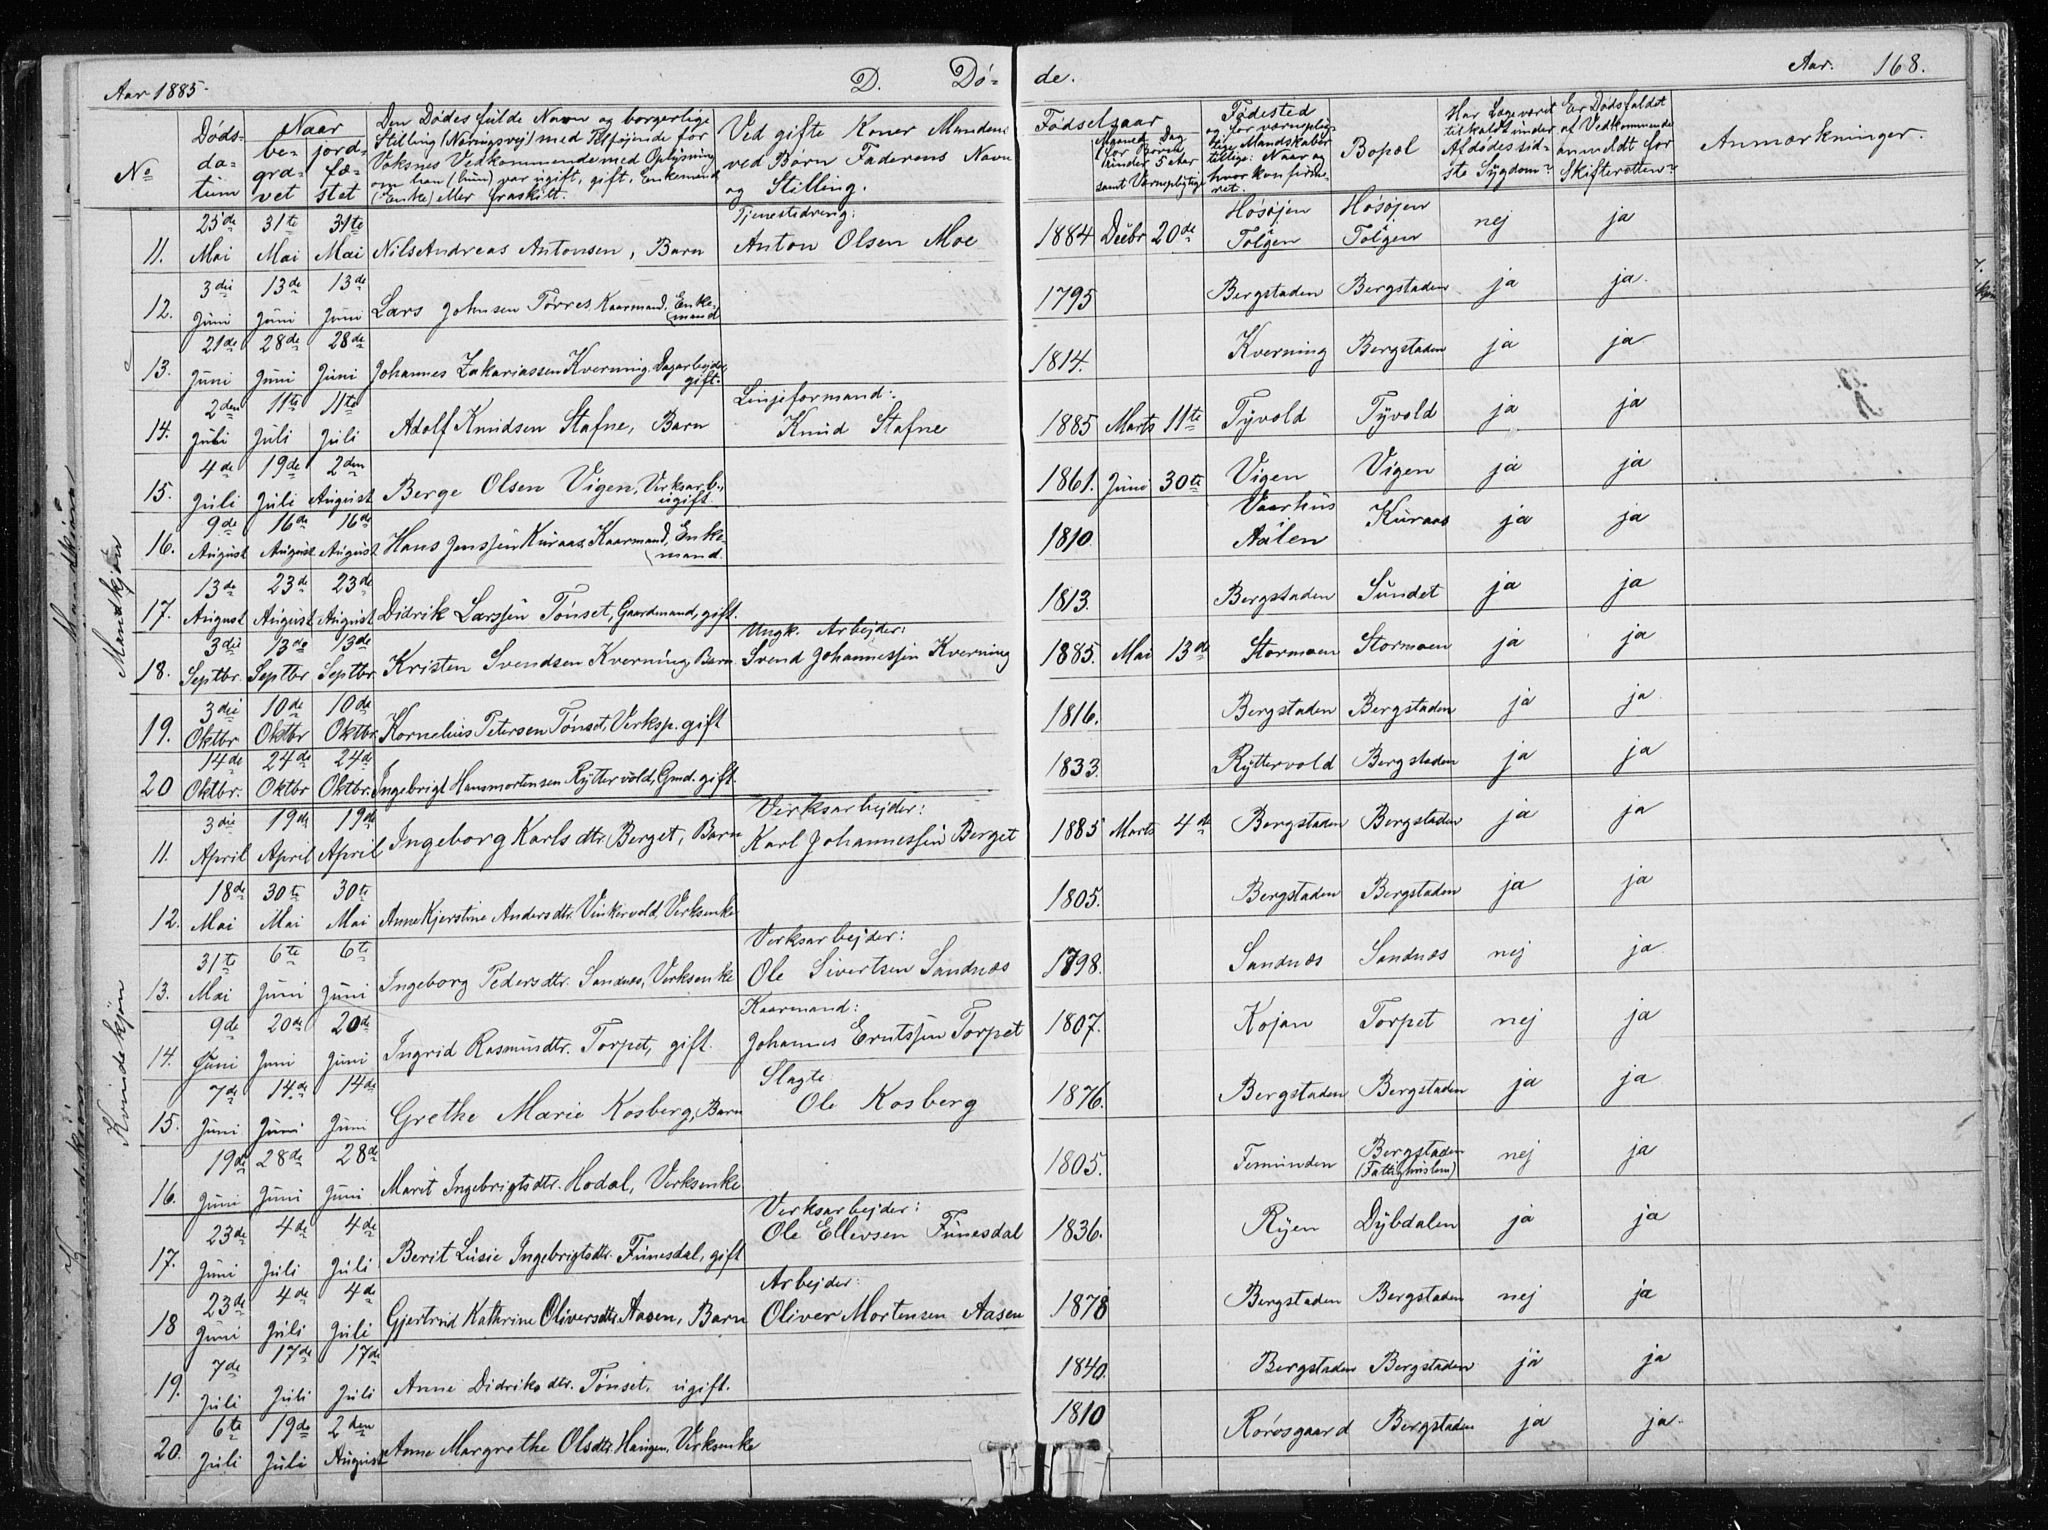 Aar 1885. D. Dö- de. Aar. 168.
No
Döds-da-tum
Naar be-gra-vet
jord-fæ-stet
Den Dödes fulde Navn og borgerlige
Stilling (Næringsvej) med Tilföjende for
Voksnes Vedkommende med Oplysning
om han (hun) var ugift, gift, Enkemand
(Enke) eller fraskilt.
Ved gifte Koner Mandens
ved Börn Faderens Navn
og Stilling.
Födselsaar
Maaned Dag
for Börn under 5 Aar
samt Værnepligtige
Födested
og for værneplig-
tige Mandskaber
tillige: Naar og
hvor konfirme-
ret.
Bopæl
Har Læge været
tilkaldt under
Afdödes sid-
ste Sygdom?
Er Dödsfaldet
af Vedkommende
anmeldt for
Skifteretten?
Anmærkninger.
Mandkjön
11. 25de Mai 31te Mai 31te Mai Nils Andreas Antonsen, Barn Tjenestedreng: Anton Olsen Moe 1884 Decbr 20de Hösöjen Tolgen Hösöjen Tolgen nej ja
12. 3die Juni 13de Juni 13de Juni Lars Johnsen Törres, Kaarmand, Enkemand 1795 Bergstaden Bergstaden ja ja.
13. 21de Juni 28de Juni 28de Juni Johannes Zakariassen Kverning, Dagarbejder, gift. 1814. Kverning Bergstaden ja ja
14. 2den Juli 11te Juli 11te Juli Adolf Knudsen Stafne, Barn Linjeformand: Knud Stafne 1885 Marts 11te Tyvold Tyvold ja ja
15. 4de Juli 19de Juli 2den August Berge Olsen Vigen, Verksarb., ugift. 1861. Juni 30te Vigen Vigen ja ja
16. 9de August 16de August 16de August Hans Jenssen Kuraas, Kaarmand, Enkemand. 1810. Vaarhus Aalen Kuraas ja ja
17. 13de August 23de August 23de August Didrik Larssen Tönset, Gaardmand, gift. 1813. Bergstaden Sundet ja ja
18. 3die Septbr. 13de Septbr 13de Septbr. Kristen Svendsen Kverning, Barn. Ungk. Arbejder: Svend Johannessen Kverning 1885. Mai 13de Stormoen Stormoen ja ja
19. 3die Oktbr 10de Oktbr 10de Oktbr. Kornelius Petersen Tönset, Verksp. gift 1816. Bergstaden Bergstaden ja ja.
20 14de Oktbr. 24de Oktbr 24de Oktbr. Ingebrigt Hansmortensen Ryttervold, Gmd. gift. 1833. Ryttervold Bergstaden ja ja
Kvindekjön
11. 3die April 19de April 19de April Ingeborg Karlsdtr. Berget, Barn Verksarbejder: Karl Johannessen Berget 1885 Marts 4de Bergstaden Bergstaden ja ja
12. 18de Mai 30te Mai 30te Mai Anne Kjerstine Andersdtr. Vinkervold, Verksenke 1805. Bergstaden Bergstaden ja ja
13. 31te Mai 6te Juni 6te Juni Ingeborg Pedersdtr. Sandnæs, Verksenke Verksarbejder: Ole Sivertsen Sandnæs 1798. Sandnæs Sandnæs nej ja
14. 9de Juni 20de Juni 20de Juni Ingrid Rasmusdtr. Torpet, gift. Kaarmand: Johannes Erntssen Torpet 1807. Kojan Torpet nej ja
15. 7de Juni 14de Juni 14de Juni Grethe Marie Kosberg, Barn Slagte. Ole Kosberg 1876. Bergstaden Bergstaden ja ja
16. 19de Juni 28de Juni 28de Juni Marit Ingebrigtsdtr. Hodal, Verksenke 1805. Femunden Bergstaden (Fattighuslem) nej ja
17. 23de Juni 4de Juli 4de Juli Berit Lusie Ingebrigtsdtr. Funesdal, gift Verksarbejder: Ole Ellevsen Funesdal 1836. Ryen Dybdalen ja ja
18 23de Juni 4de Juli 4de Juli Gjertrud Kathrine Oliversdtr. Aasen, Barn Arbejder: Oliver Mortensen Aasen 1878 Bergstaden Bergstaden nej ja
19. 7de Juli 17de Juli 17de Juli Anne Didriksdtr. Tönset, ugift. 1840. Bergstaden Bergstaden ja ja
20. 6te Juli 19de Juli 2den August Anne Margrethe Olsdtr. Haugen, Verksenke 1810 Rörosgaard Bergstaden ja ja.